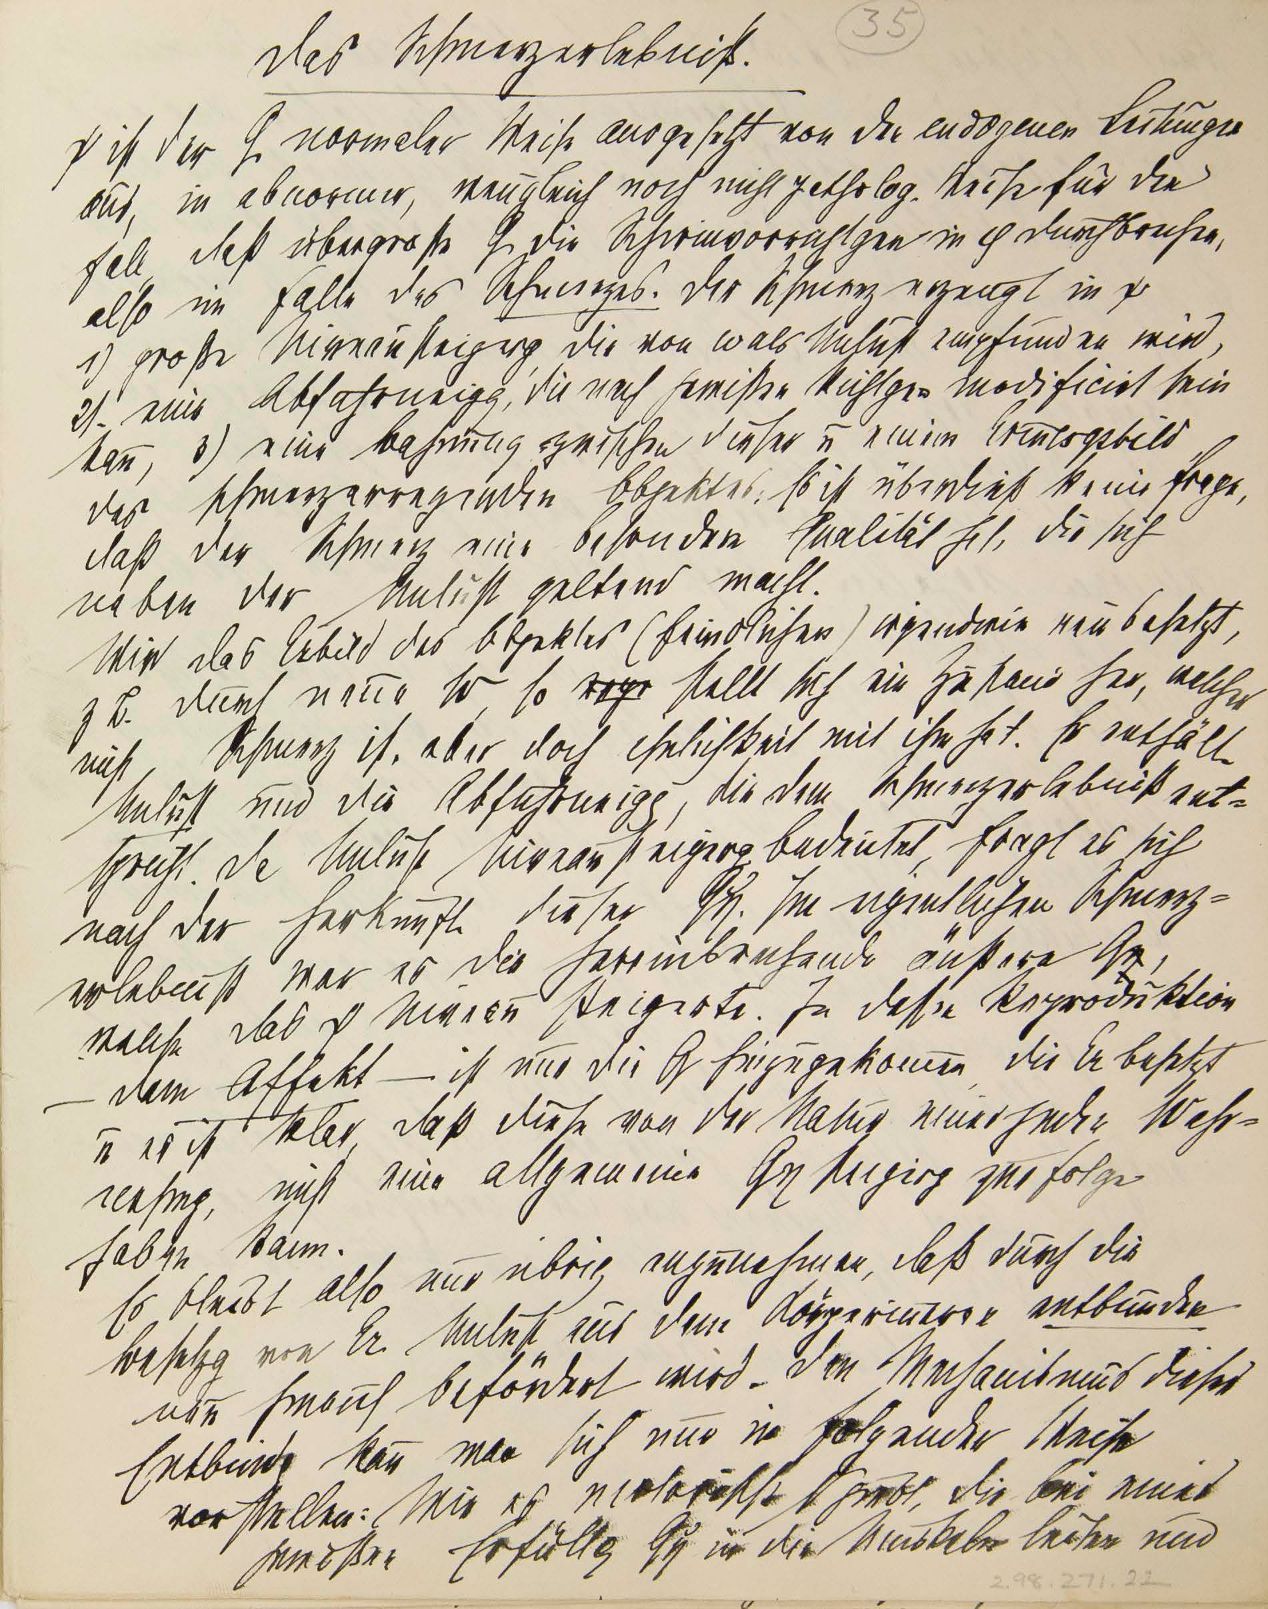 35
Das Schmerzerlebniß.
ψ ist der Q normaler Weise ausgesetzt von den endogenen Leitungen
aus, in abnormer, wenngleich noch nicht patholog. Weise für den
Fall, daß übergroße Q die Schirmvorrichtgen in φ durchbrechen,
also im Falle des Schmerzes. Der Schmerz erzeugt in ψ
1) große Niveausteigerg, die von ω als Unlust empfunden wird,
2) eine Abfuhrneigg, die nach gewißen Richtgen modificirt sein
kan̄, 3) eine Bahnung zwischen dieser u einem Erinnrgsbild
des schmerzerregenden Objektes. Es ist überdieß keine Frage,
daß der Schmerz eine besondere Qualität hat, die sich
neben der Unlust geltend macht.
Wird das Erbild des Objektes (feindlichen) irgendwie neu besetzt,
z B. durch neue W, so stellt sich ein Zustand her, welcher
nicht Schmerz ist, aber doch Ähnlichkeit mit ihm hat. Er enthält
Unlust und die Abfuhrneigg, die dem Schmerzerlebniß ent-
spricht. Da Unlust Niveausteigerg bedeutet, fragt es sich
nach der Herkunft dieser Qη. Im eigentlichen Schmerz-
erlebniß war es die hereinbrechende äußere Qη,
welche das ψ Niveau steigerte. In deßen Reproduktion
— dem Affekt — ist nur die Q hinzugekomen, die Er besetzt
u es ist klar, daß diese von der Natur einer jeden Wahr-
nehmg, nicht eine allgemeine Qη Steigerg zur Folge
haben kann.
Es bleibt also nur übrig anzunehmen, daß durch die
Besetzg von Er. Unlust aus dem Körperinneren entbunden
neu hinauf befördert wird. Den Mechanismus dieser
Entbindg kan̄ man sich nur in folgender Weise
vorstellen: Wie es motorische gibt, die bei einer
gewißen Erfüllg Qη in die Muskeln leiten und
2.98.271.22